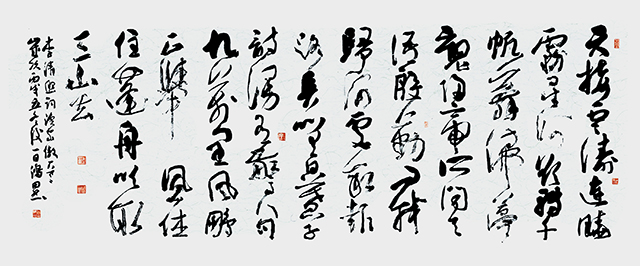 天接雲濤連曉
霧星河欲轉千
帆舞彷彿夢
魂歸帝所聞天
語殷勤問我
歸何處我報
路長嗟日暮學
詩謾有驚人句
九萬里風鵬
正舉風休
住蓬舟吹取
三山去
李清照詞漁家傲
歲次丙戌五月